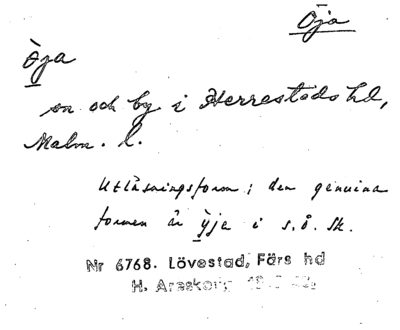 Öja
òja
sn och by i Herrestads hd,
Malm. l.
Utläsningsform; den genuina
formen är ỳja i s.ö. sk.
Nr 6768. Lövestad, Färs hd
H. Areskoug